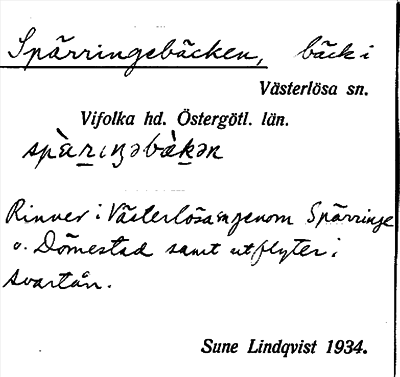 Spärringebäcken, bäck i
Västerlösa sn.
Vifolka hd. Östergötl. län.
Rinner i Västerlösa genom Spärringe
o. Dömestad samt utflyter i
Svartån.
Sune Lindqvist 1934.